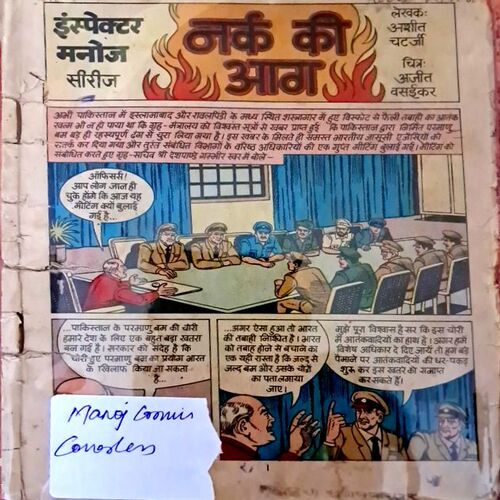 इंस्पेक्टर
मनोज
सीरीज
नर्क की
आग
लेखक:
अशीत
चटर्जी
चित्र:
अजीत
वसईकर
अभी पाकिस्तान में इस्लामाबाद और रावलपिंडी के मध्य स्थित शस्त्रागार में हुए विस्फोट से फैली तबाही का आतंक
खत्म भी न हो पाया था कि गृह-मंत्रालय को विश्वस्त सूत्रों से खबर प्राप्त हुई कि पाकिस्तान द्वारा निर्मित परमाणु
बम बड़े ही रहस्यपूर्ण ढंग से चुरा लिया गया है। इस खबर के मिलते ही समस्त भारतीय जासूसी एजेंसियों को
सतर्क कर दिया गया और तुरन्त संबंधित विभागों के वरिष्ठ अधिकारियों की एक गुप्त मीटिंग बुलाई गई। मीटिंग को
संबोधित करते हुए गृह-सचिव श्री देशपाण्डे गम्भीर स्वर में बोले-
ऑफिसर्स!
आप लोग जान ही
चुके होंगे कि आज यह
मीटिंग क्यों बुलाई
गई है...
...पाकिस्तान के परमाणु बम की चोरी
हमारे देश के लिए एक बहुत बड़ा खतरा
बन गई है। सरकार को संदेह है कि
चोरी हुए परमाणु बम का प्रयोग भारत
के खिलाफ किया जा सकता
है...
...अगर ऐसा हुआ तो भारत
की तबाही निश्चित है। भारत
को तबाह होने से बचाने का
एक यही रास्ता है कि जल्द से
जल्द बम और उसके चोरों
का पता लगाया
जाए।
मुझे पूरा विश्वास है सर कि इस चोरी
में आतंकवादियों का हाथ है। अगर हमें
विशेष अधिकार दे दिए जायें तो हम बड़े
पैमाने पर आतंकवादियों की धर-पकड़
शुरू कर इस खतरे को समाप्त
कर सकते हैं।
Manoj Comics